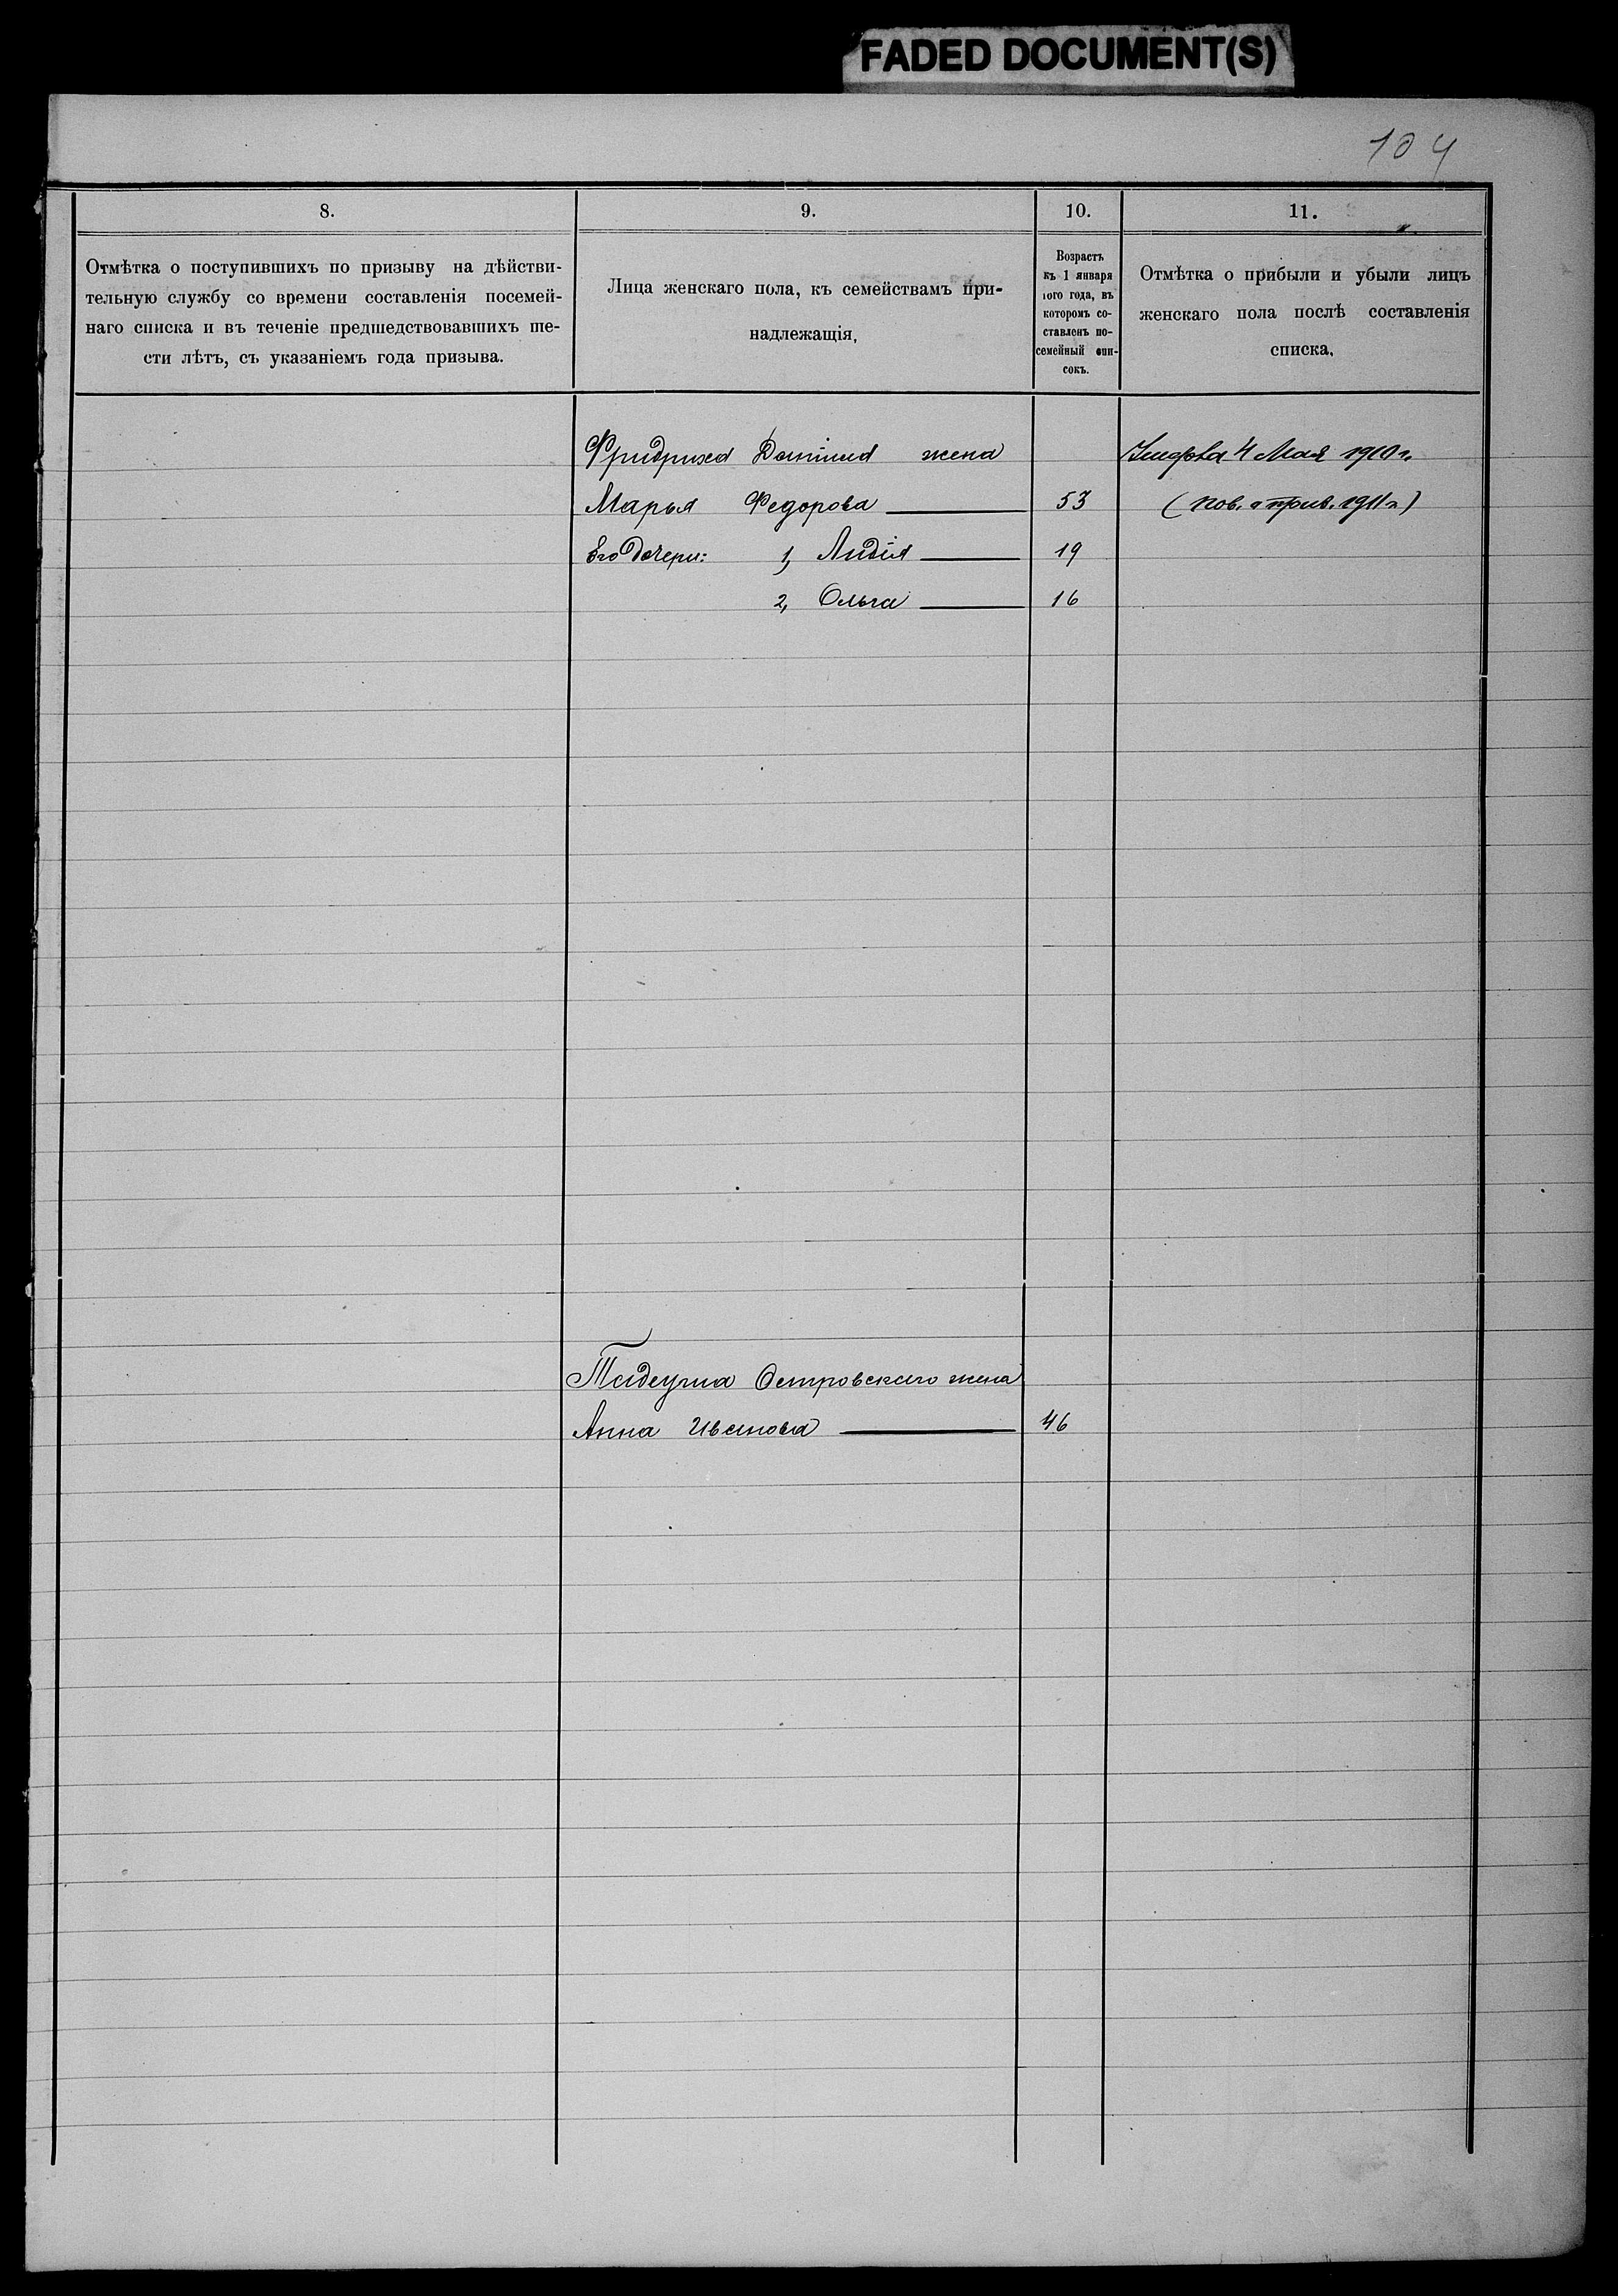 FADED DOCUMENT(S)
104
8.
Отмѣтка о поступившихъ по призыву на дѣйстви-
тельную службу со времени составленія посемей-
наго списка и въ теченіе предшедствовавшихъ ше-
сти лѣтъ, съ указаніемъ года призыва.
9.
Лица женскаго пола, къ семействамъ при-
надлежащія,
10.
Возрастъ
къ 1 января
того года, въ
которомъ со-
ставленъ по-
семейный спи-
сокъ.
11.
Отмѣтка о прибыли и убыли лицъ
женскаго пола послѣ составленія
списка,
Фридриха жена
Умерла 4 Мая 1910 г.
Марья Федорова 53
1911 г)
Его дочери: 1, Лидія 19
2, Ольга 16
Тадеуша Островскаго жена
Анна Иванова 46